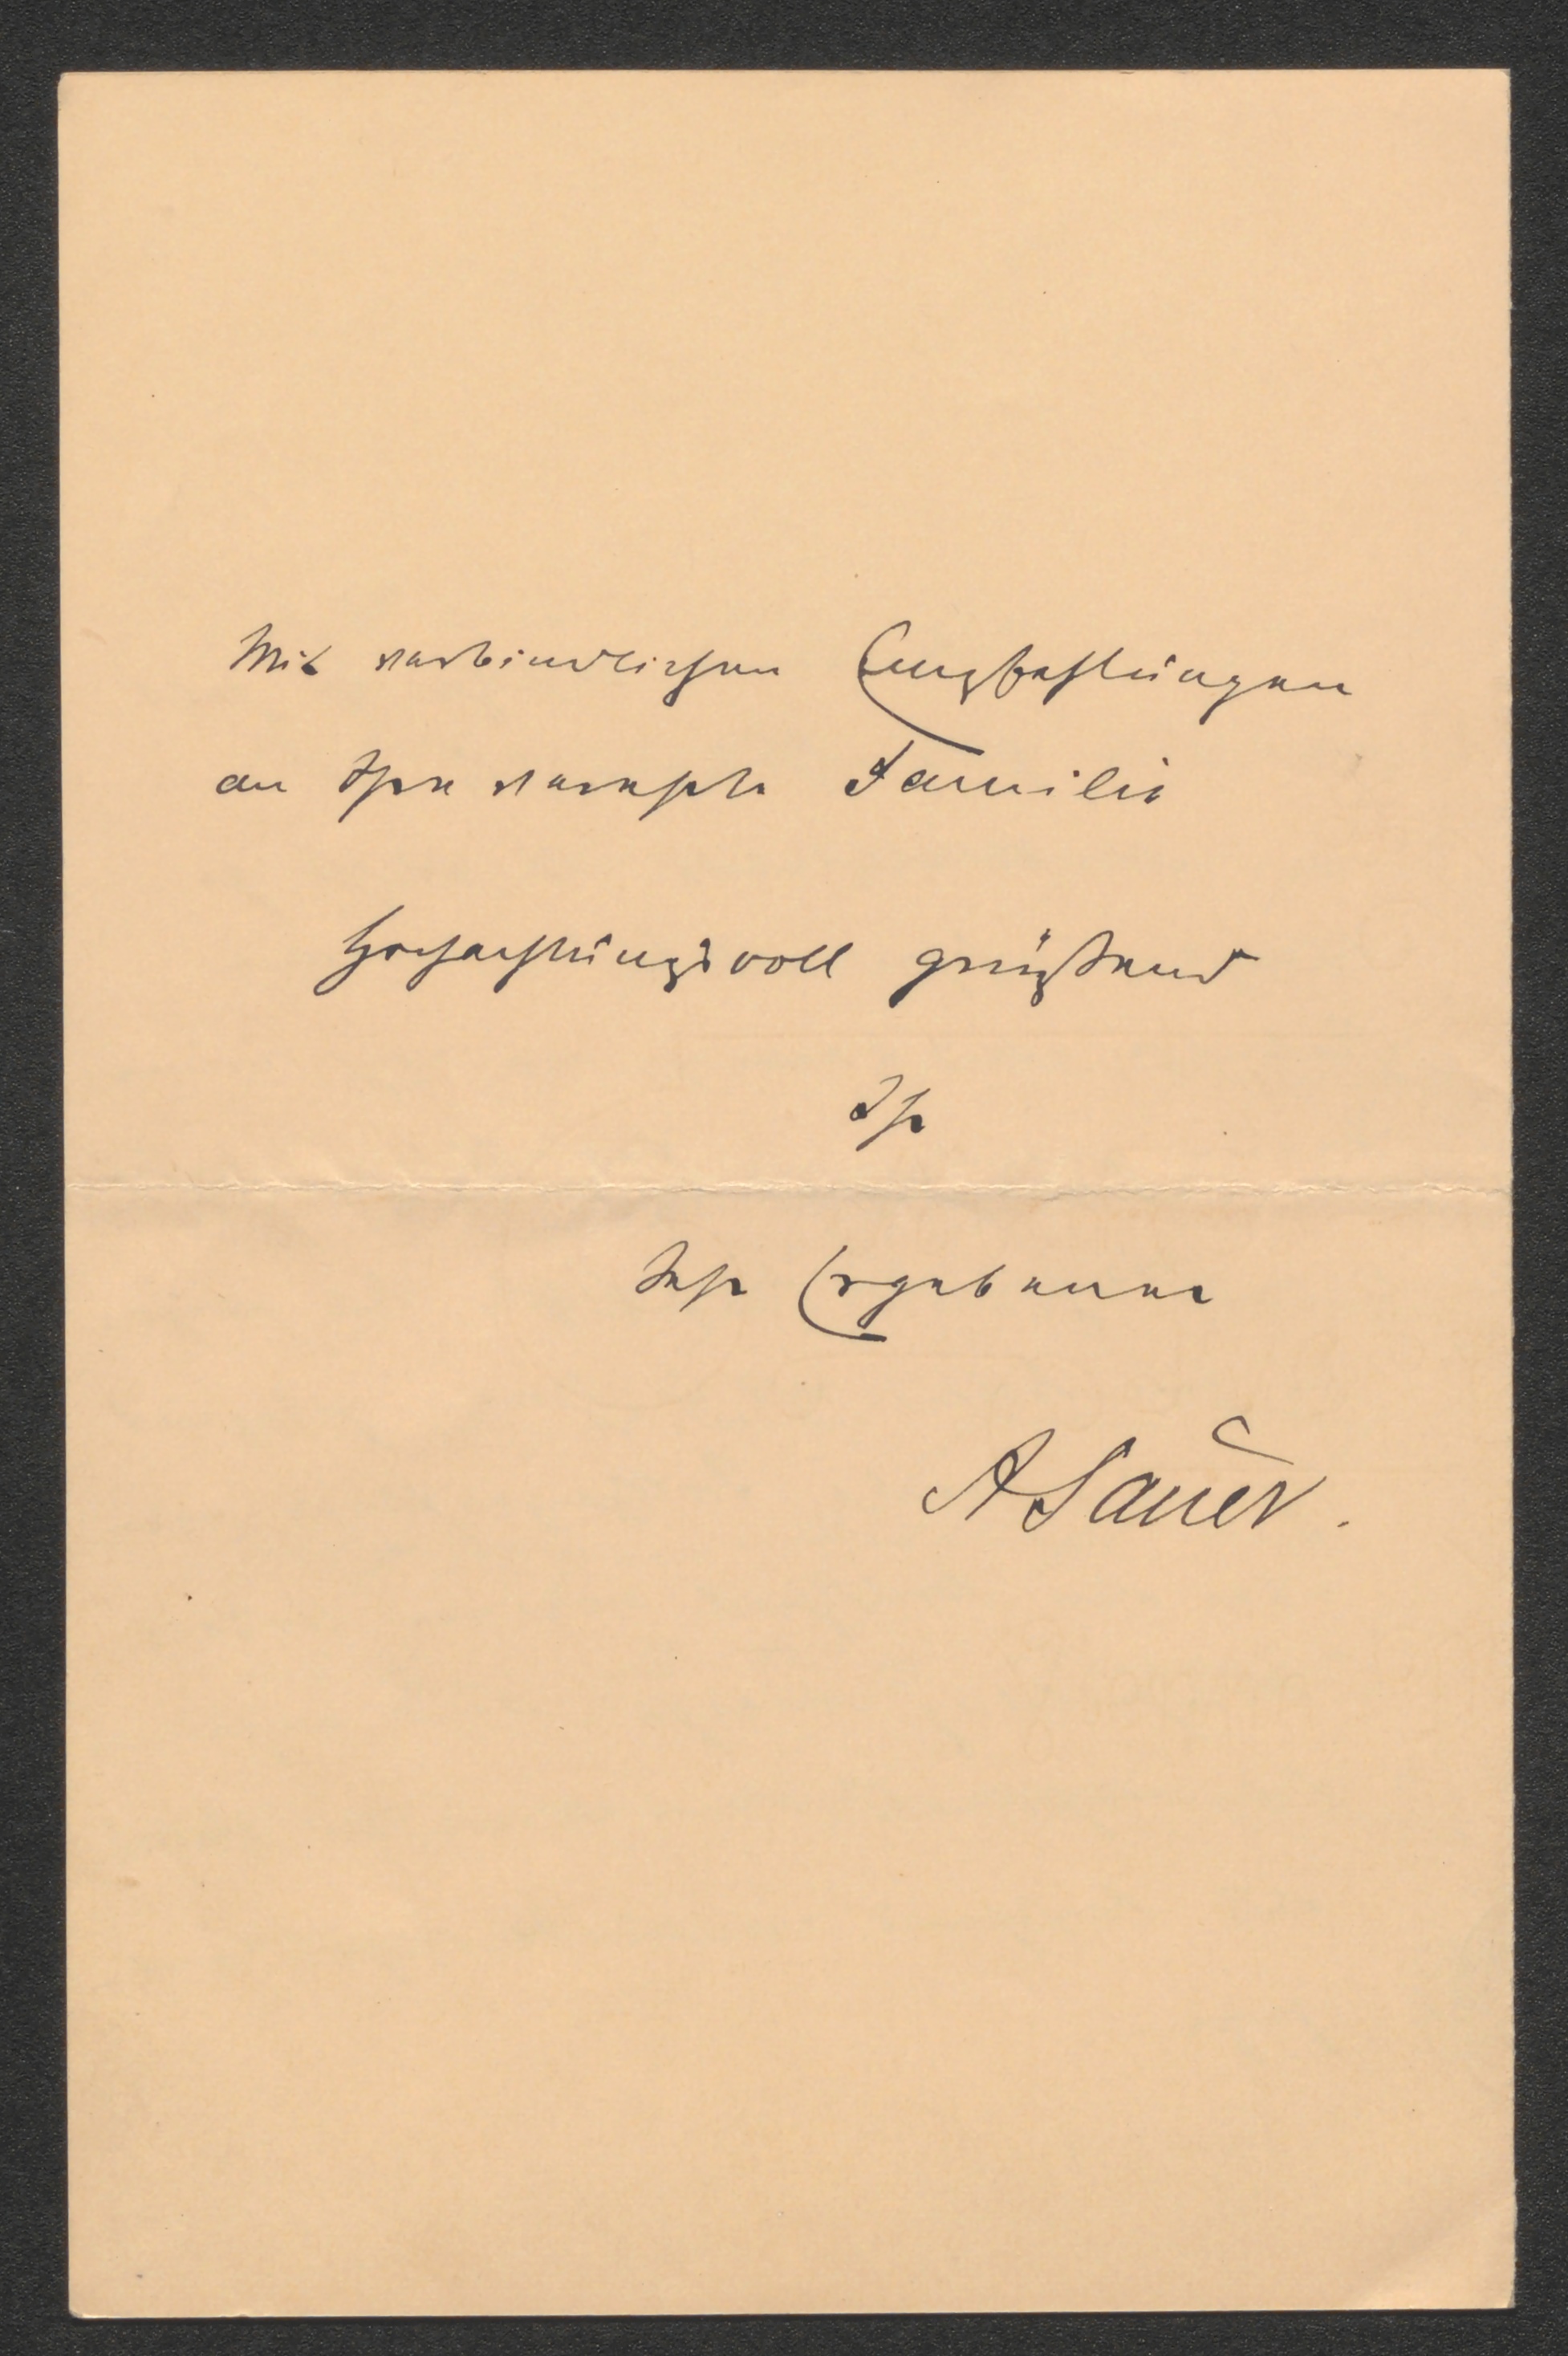 Mit verbindlichen Empfehlungen
an Ihre verehrte Familie
hochachtungsvoll grüßend
Ihr
sehr Ergebener
ASauer.